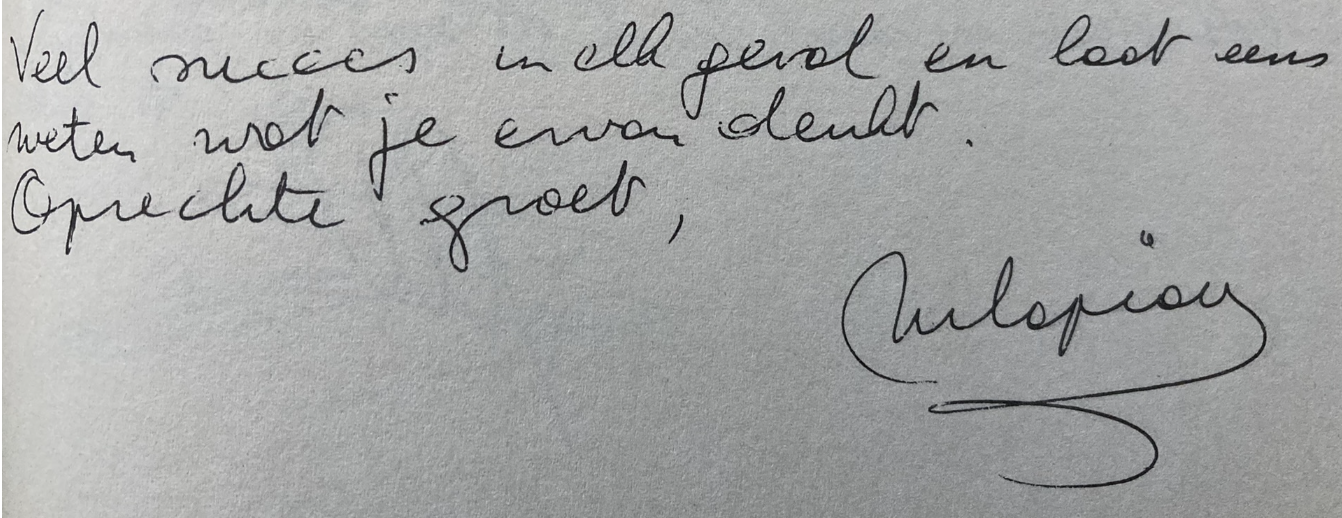 Veel succes in elk geval en laat eens
weten wat je ervan denkt.
Oprechte groet,